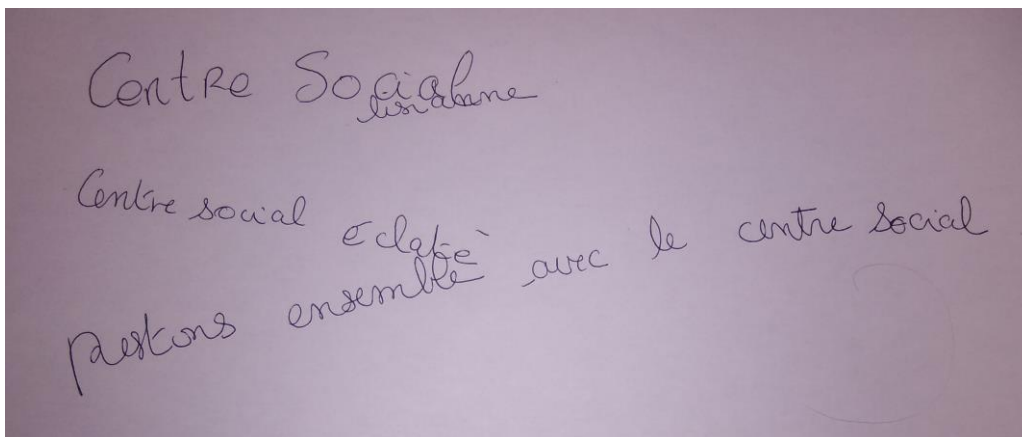 Centre Social
Centre social eclaté
restons ensemble avec le centre social